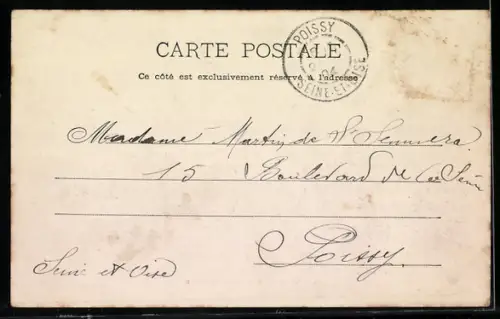 CARTE POSTALE
Ce côté est exclusivement réservé à l'adresse
POISSY
SEINE-ET-OISE
Madame Martin de St
15 Boulevard de la Seine
Poissy.
Seine et Oise